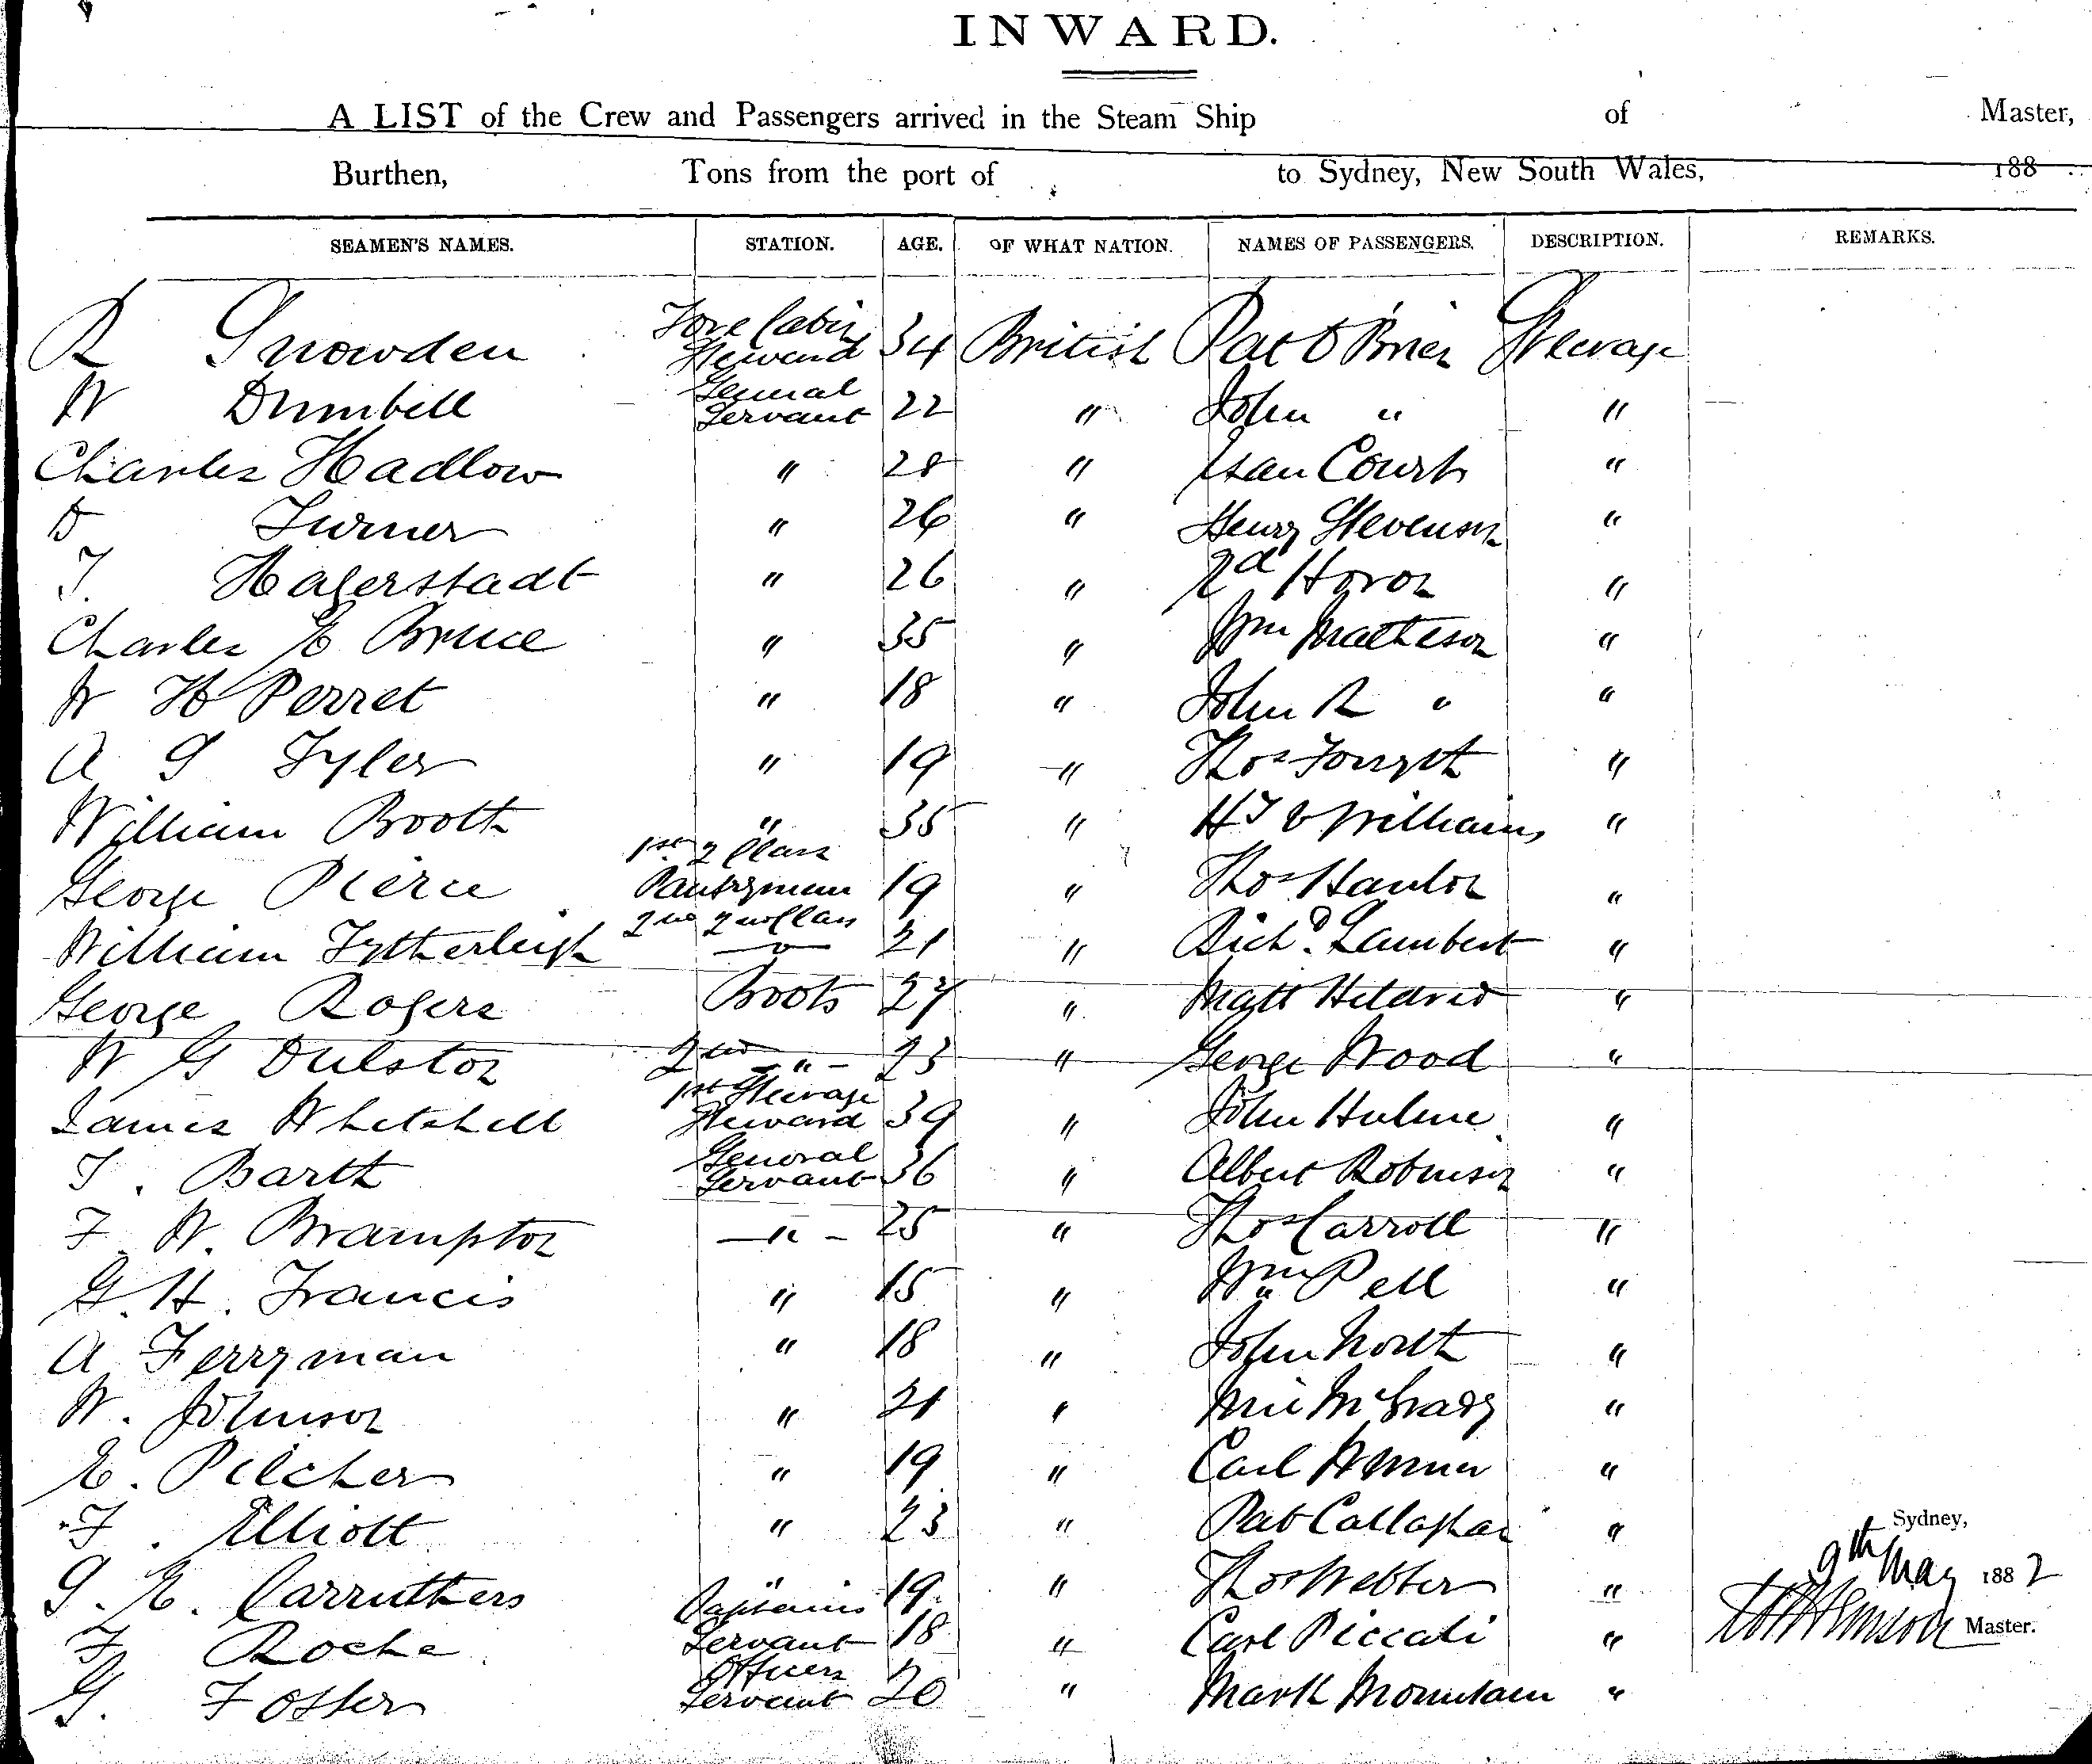 INWARD.
A LIST of the Crew and Passengers arrived in the Steam Ship of Master,
Burthen, Tons from the port of to Sydney, New South Wales, 188
SEAMEN'S NAMES. STATION. AGE. OF WHAT NATION. NAMES OF PASSENGERS. DESCRIPTION. REMARKS.
R Snowden Fore Cabin Steward 34 British Pat O'Brien Steerage
W Dumbell General Servant 22 " John " "
Charles Hadlow " 28 " Court "
Turner " 26 " Henry Stevenson "
T. Hagerstadt " 26 " "
Charles E Bruce " 35 " Wm Matheson "
W H Perret " 18 " John R " "
A G Tyler " 19 " Thos Forsyth "
William Booth " 35 " Williams "
George Pierce 1st 2 Class Pantryman 19 " Thos Hanlon "
William Fytherleigh 2nd 2nd Class 21 " Richd. Lambert "
George Rogers Boots 27 " Matt Hildred "
W G Dulston 2nd " 23 " George Wood "
James Whitshell 1st Steerage Steward 39 " John Hulme "
T. Barth General Servant 36 " Albert Robinson "
F. W. Brampton " 25 " Thos Carroll "
G. H. Francis " 15 " Wm Pell "
A Ferryman " 18 " John North "
W. Johnson " 21 " McGrady "
E. Pilcher " 19 " Carl "
F. Elliott " 23 " Pat Callaghan "
G. E. Carruthers " 19 " Thos Webber "
F Roche Captains Servant 18 " Carl Piccali "
G. Foster Officers Servant 20 " Mark Mountain "
Sydney,
9th May 1882
Master.